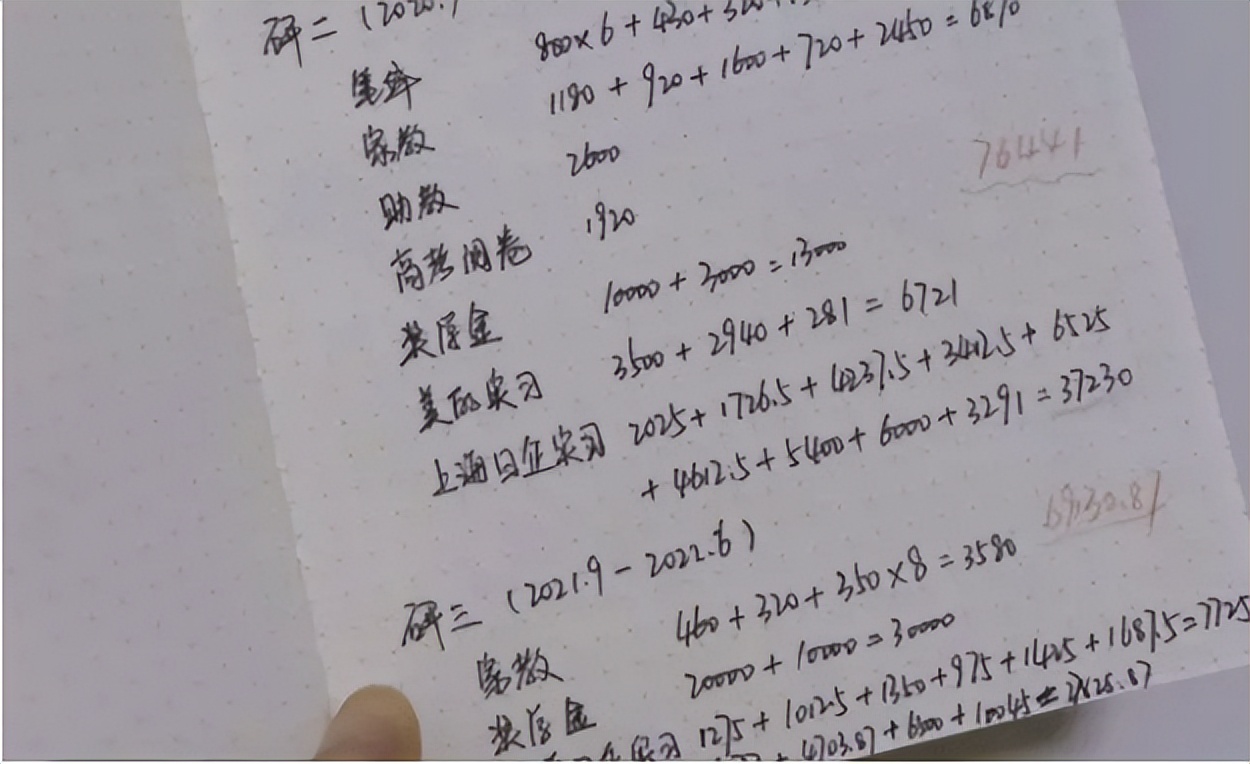 研二（2020.
800×6+430+320+
笔译 1180+920+1600+720+2450=6870
家教 2600
助教 1920
76441
高考阅卷
10000+3000=13000
奖学金 3500+2940+281=6721
美的实习
上海日企实习 2025+1726.5+4237.5+3412.5+6525
+4612.5+5400+6000+3291=37230
69130.87
研三（2021.9-2022.6）
460+320+350×8=3580
家教 20000+10000=30000
奖学金 1275+1012.5+1350+975+1425+1687.5=7725
实习 +4703.87+6500+10045=27825.87